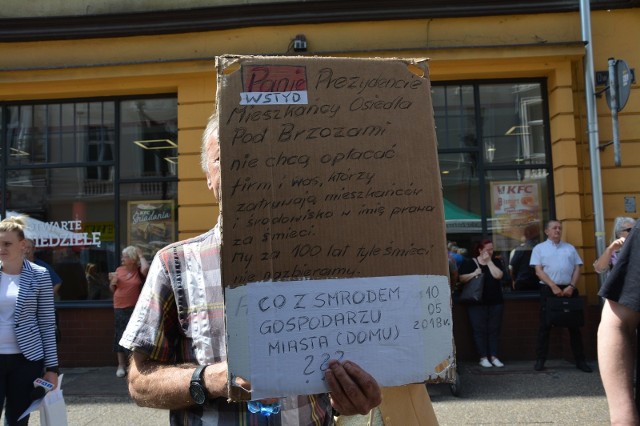 Panie Prezydencie
WSTYD
Mieszkańcy Osiedla
Pod Brzozami
nie chcą opłacać
firm i was, którzy
zatruwają mieszkańców
i środowisko w imię prawa
za śmieci.
My za 100 lat tyle śmieci
nie nazbieramy.
A CO Z SMRODEM
GOSPODARZU
MIASTA (DOMU)
???
10
05
2018r.
CZWARTE
NIEDZIELE
KFC